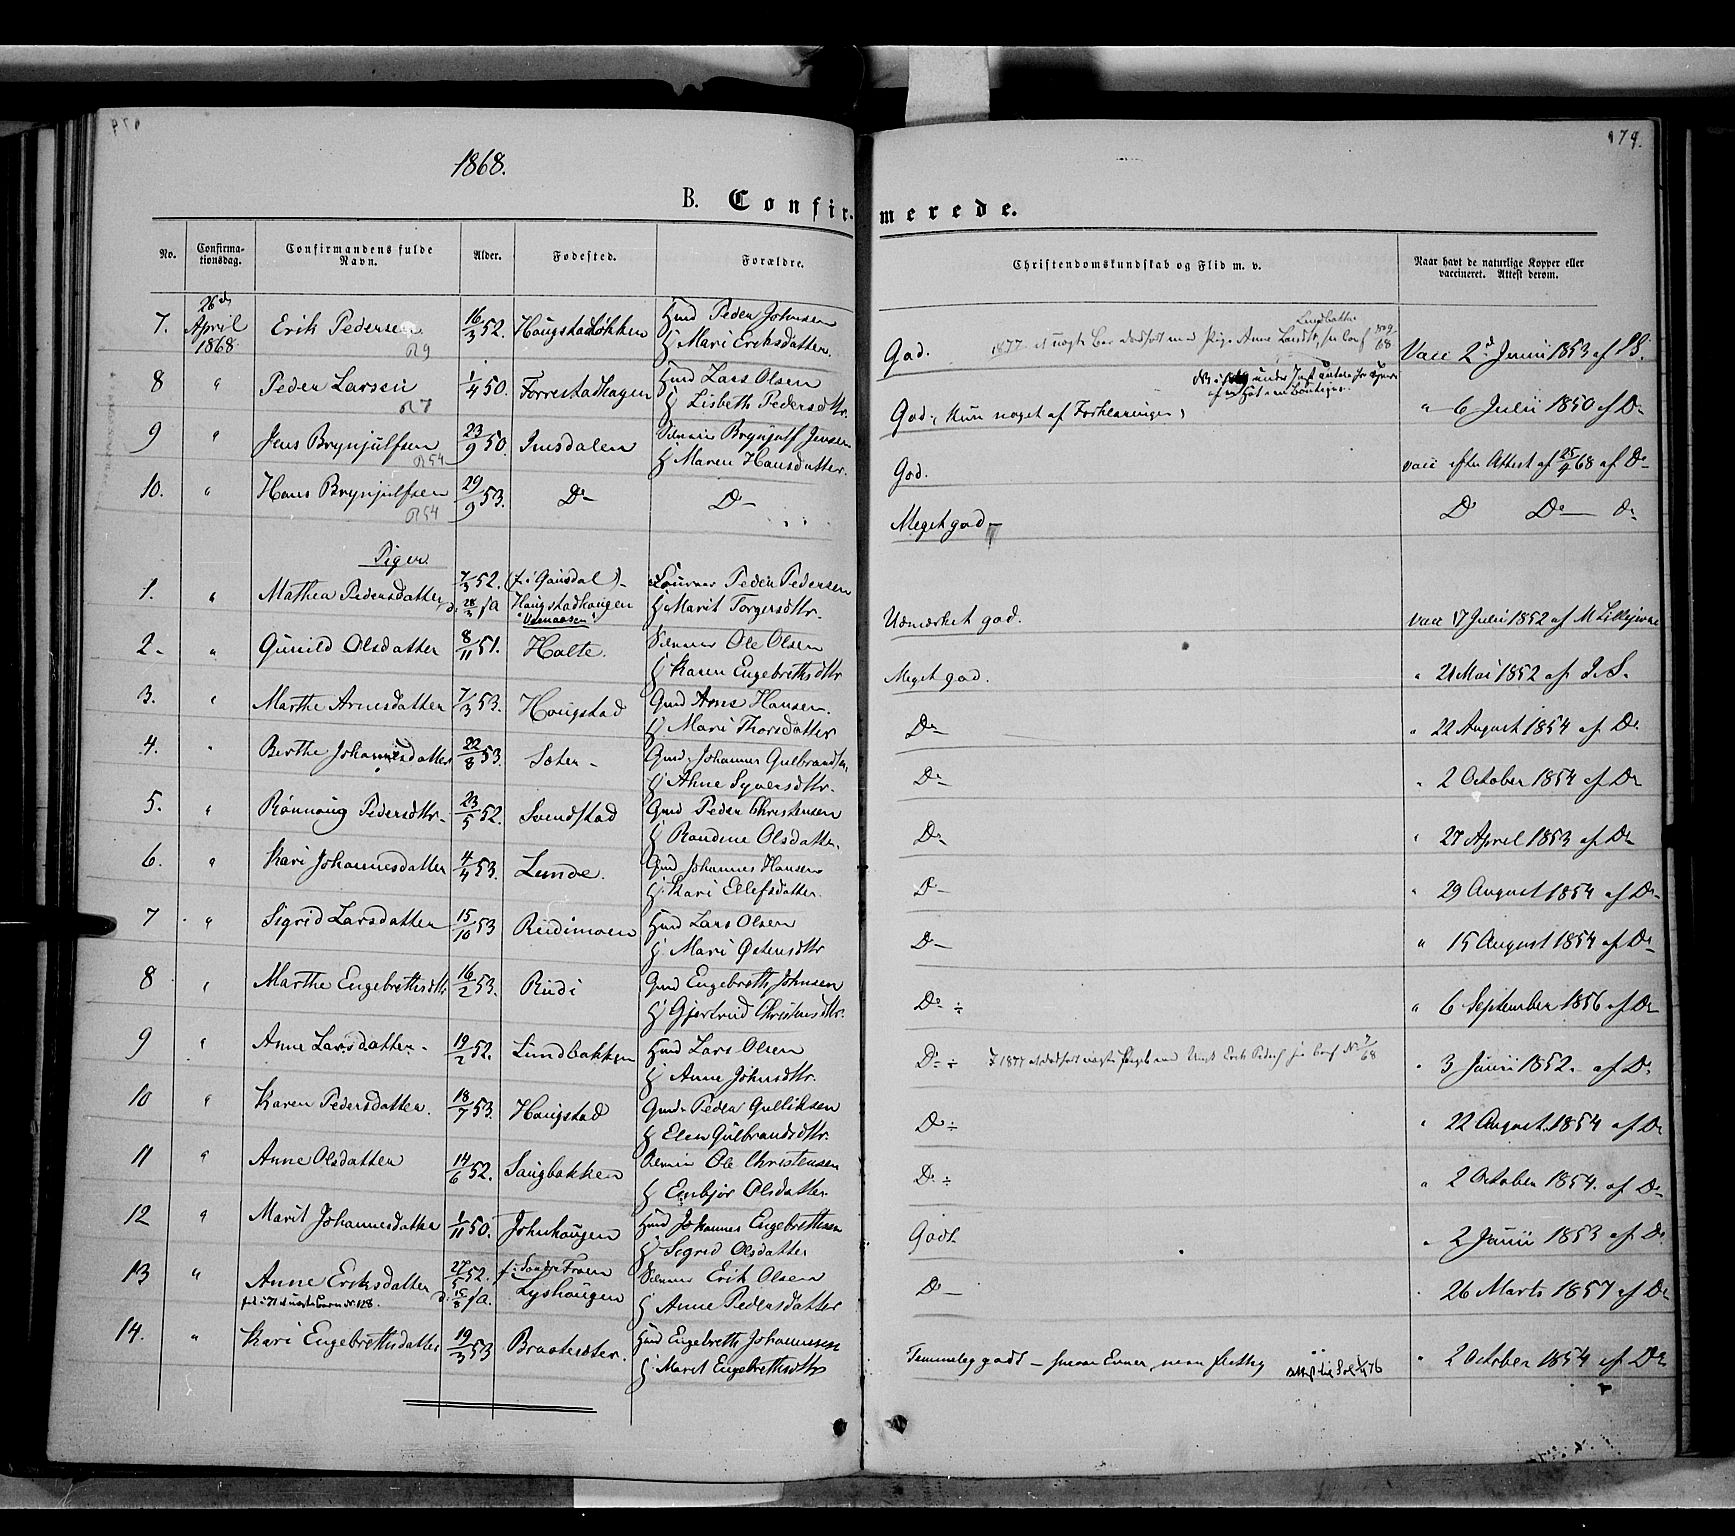 179.
1868.
B. Confirmerede.
No. Confirmationsdag. Confirmandens fulde Navn. Alder. Fødested. Forældre. Christendomskundskab og Flid m. v. Naar havt de naturlige Kopper eller vaccineret. Attest derom.
7. 26de April 1868 Erik Pedersen 16/3 52. Haugstadløkken Huusmd Peder Johnsen
H Mari Eriksdatter. God. Vacc 2d Junii 1853 af
8 " Peder Larssen 1/4 50. Forrestadhagen Huusmd Lars Olsen
H Lisbeth Pedersdtr. God, kun noget af Forklaringen " 6 Julii 1850 af Do
9 " Jens Brynjulfsen 23/9 50. Imsdalen Brynjulf Jensen
H Maren Hansdatter. God. vacc efter Attest af 25/4 68 af Do
10. " Hans Brynjulfsen 29/9 53. Do Do Meget god Do Do Do
Piger
1. " Mathea Pedersdatter 7/3 52. (f. i Gausdal)
Haugstadhaugen Peder Pedersen
H Marit Torgersdtr. Udmærket god. vacc 17 Julii 1852 af M
2. " Gunild Olsdatter 8/11 51. Holte. Ole Olsen
H Karen Engebrethsdtr Meget god. " 21 Mai 1852 af
3. " Marthe Arnesdatter 7/3 53. Haugstad Gmd Arne Hansen.
H Mari Thorsdatter Do " 22 August 1854 af Do
4. " Berthe Johannesdatter 22/8 53. Sæter Gmd Johannes Gulbrandsn.
H Anne Syversdtr. Do " 2 October 1854 af Do
5. " Rønnaug Pedersdtr. 23/5 52. Svendstad Gmd Peder Christensen
H Randine Olsdatter. Do " 27 April 1853 af Do
6. " Kari Johannesdatter 4/4 53. Lunde. Gmd Johannes Hansen
H Kari Ellefsdatter. Do " 29 August 1854 af Do
7 " Sigrid Larsdatter 15/10 53 Rudimoen Huusmd Lars Olsen
H Mari Østensdtr Do " 15 August 1854 af Do
8 " Marthe Engebrethsdtr 16/2 53. Rudi Gmd Engebreth Johnsen
H Gjertrud Christensdtr. Do ÷ " 6 September 1856 af Do
9 " Anne Larsdatter 19/2 52. Lundbakken Huusmd Lars Olsen
H Anne Johnsdtr. Do ÷ " 3 Junii 1852. af Do
10 " Karen Pedersdatter. 18/7 53. Haugstad Gmd Peder Gulliksen
H Elen Gulbrandsdtr. Do ÷ " 22 August 1854 af Do
11 " Anne Olsdatter 14/6 52. Saugbakken Ole Christensen
H Embjør Olsdatter Do ÷ " 2 October 1854. af Do
12 " Marit Johannesdatter 1/11 50. Johnhaugen Huusmd Johannes Engebrethsen
H Sigrid Olsdatter Godt " 2 Junii 1853 af Do
13 " Anne Eriksdatter 27/5 52. f. i Søndre Froen
Lyshaugen Erik Olsen
H Anne Pedersdatter Do " 26 Marts 1857 af Do
14. " Kari Engebrethsdatter 19/3 53 Braatesæter. Huusmd Engebreth Johannessen
H Marit Engebrethsdtr Temmelig godt – smaa Evner, men flittig " 2 October 1854 af Do